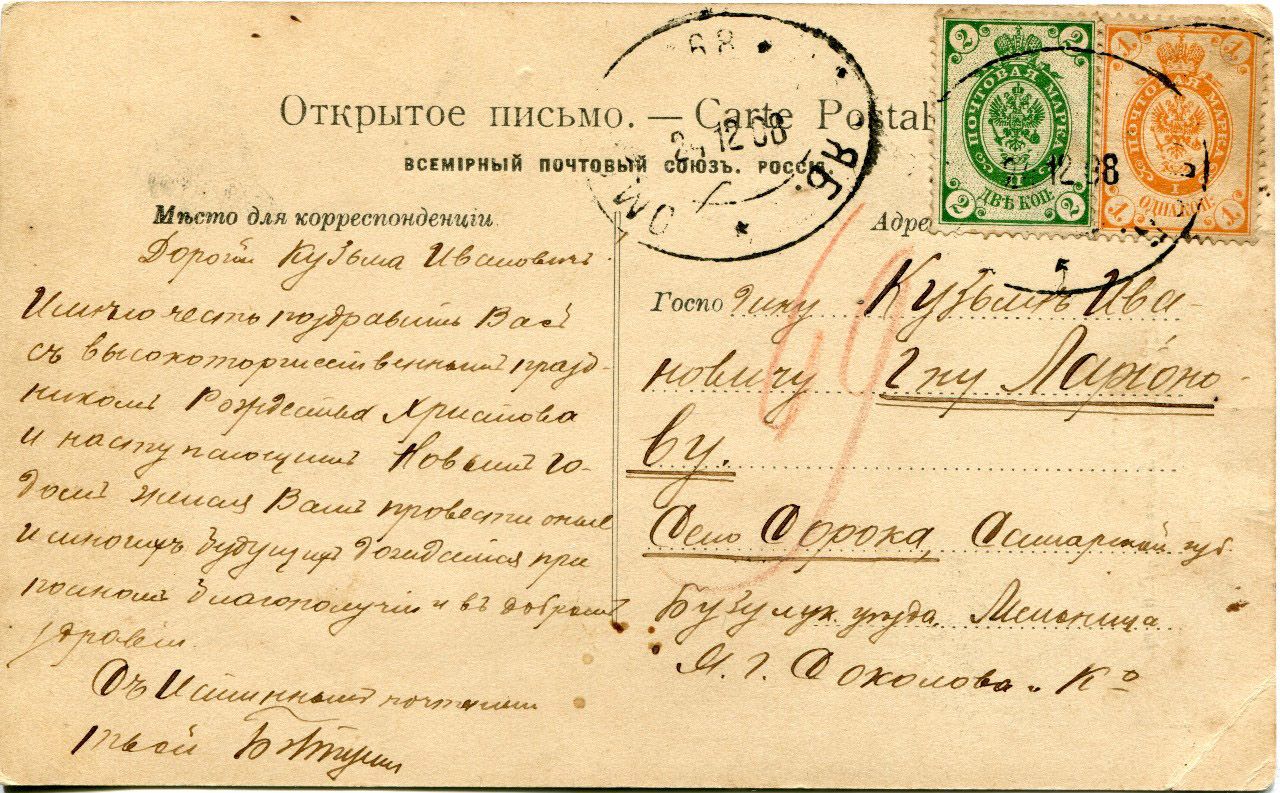 Открытое письмо. — Carte Postal
ВСЕМІРНЫЙ ПОЧТОВЫЙ СОЮЗЪ. РОССІЯ
68
24 12 08
2 2
ПОЧТОВАЯ МАРКА
ДВѢ КОП.
2 2
1 1
ПОЧТОВАЯ МАРКА
ОДНА КОП.
1 1
12 08
Мѣсто для корреспонденціи
Дорогой Кузьма Ивановичъ
Имѣю честь поздравить Васъ
съ высокоторжественнымъ празд-
никомъ Рождества Христова
и наступающимъ Новымъ го-
домъ желая Вамъ провести оные
и многихъ будущихъ при
полномъ благополучіи и въ добромъ
здравіи
Съ Истиннымъ почтеніем
твой
Адре
Господину Кузьмѣ Ива-
новичу Г-ну Ларіоно-
ву.
Село Сорока, Самарской губ.
Бузулук. уѣзда, Мельница
Я. Г. Соколова и Ко
69